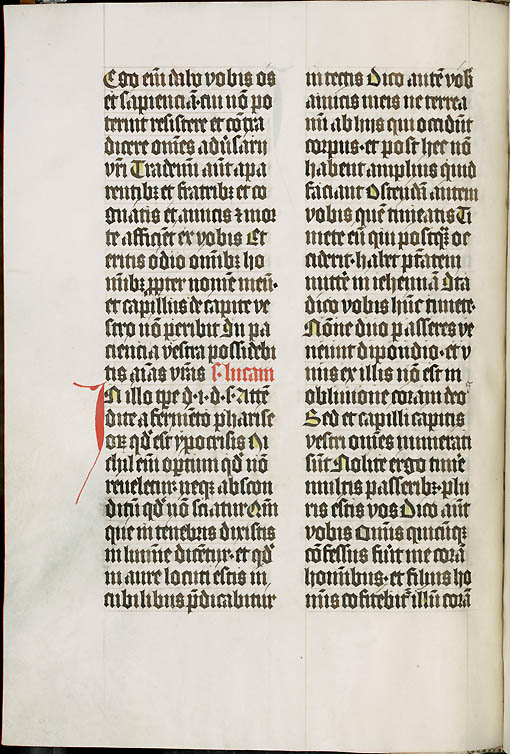 Ego em̄ dabo vobis os
et sapienciā· cui nō po
terūt resistere et cōtra
dicere om̄es adūsarii
vr̄i Trademī aūt a pa
rentibꝫ et fratribꝫ et co
gnatis et amicis ⁊ mor
te afficiēt ex vobis Et
eritis odio om̄ibꝫ ho
mībꝫ ꝓpter nomē meū·
et capillus de capite ve
stro nō peribit In pa
ciencia vestra possidebi
tis aīas vr̄as s. lucam
In illo tp̄e d. i. d. s. Atten
dite a fermēto pharise
oꝝ qd̄ est ypocrisis Ni
chil em̄ optum qd̄ nō
reveletur· neqꝫ abscon
ditū qd̄ nō sciatur Qm̄
que in tenebris dixistis
in lumīe dicētur· et qd̄
in aure locuti estis in
cubilibus p̄dicabitur
in tectis Dico autē vob̄
amicis meis ne terrea
mī ab hiis qui occidūt
corpus· et post hec nō
habent amplius quid
faciant Ostendā autem
vobis quē timeatis Ti
mete eū qui postqꝫ oc
ciderit· habet ptātem
mittē in iehennā Ita
dico vobis hūc timete·
Nōne duo passeres ve
neunt dipondio· et v
nus ex illis nō est in
oblivione coram deo
Sed et capilli capitis
vestri om̄es numerati
sūt Nolite ergo timē
multis passeribꝫ· plu
ris estis vos Dico aūt
vobis Om̄is quicūqꝫ
cōfessus fūit me corā
hominibus· et filius ho
minis cōfitebit᷑ illū corā